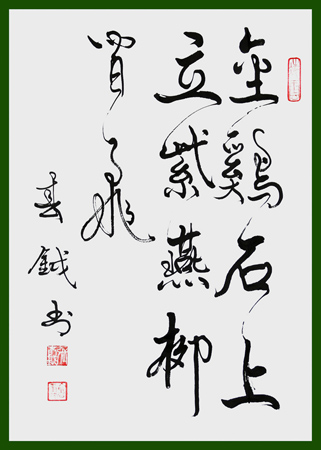 金鷄石上
立紫燕柳
間飛
春鉞书